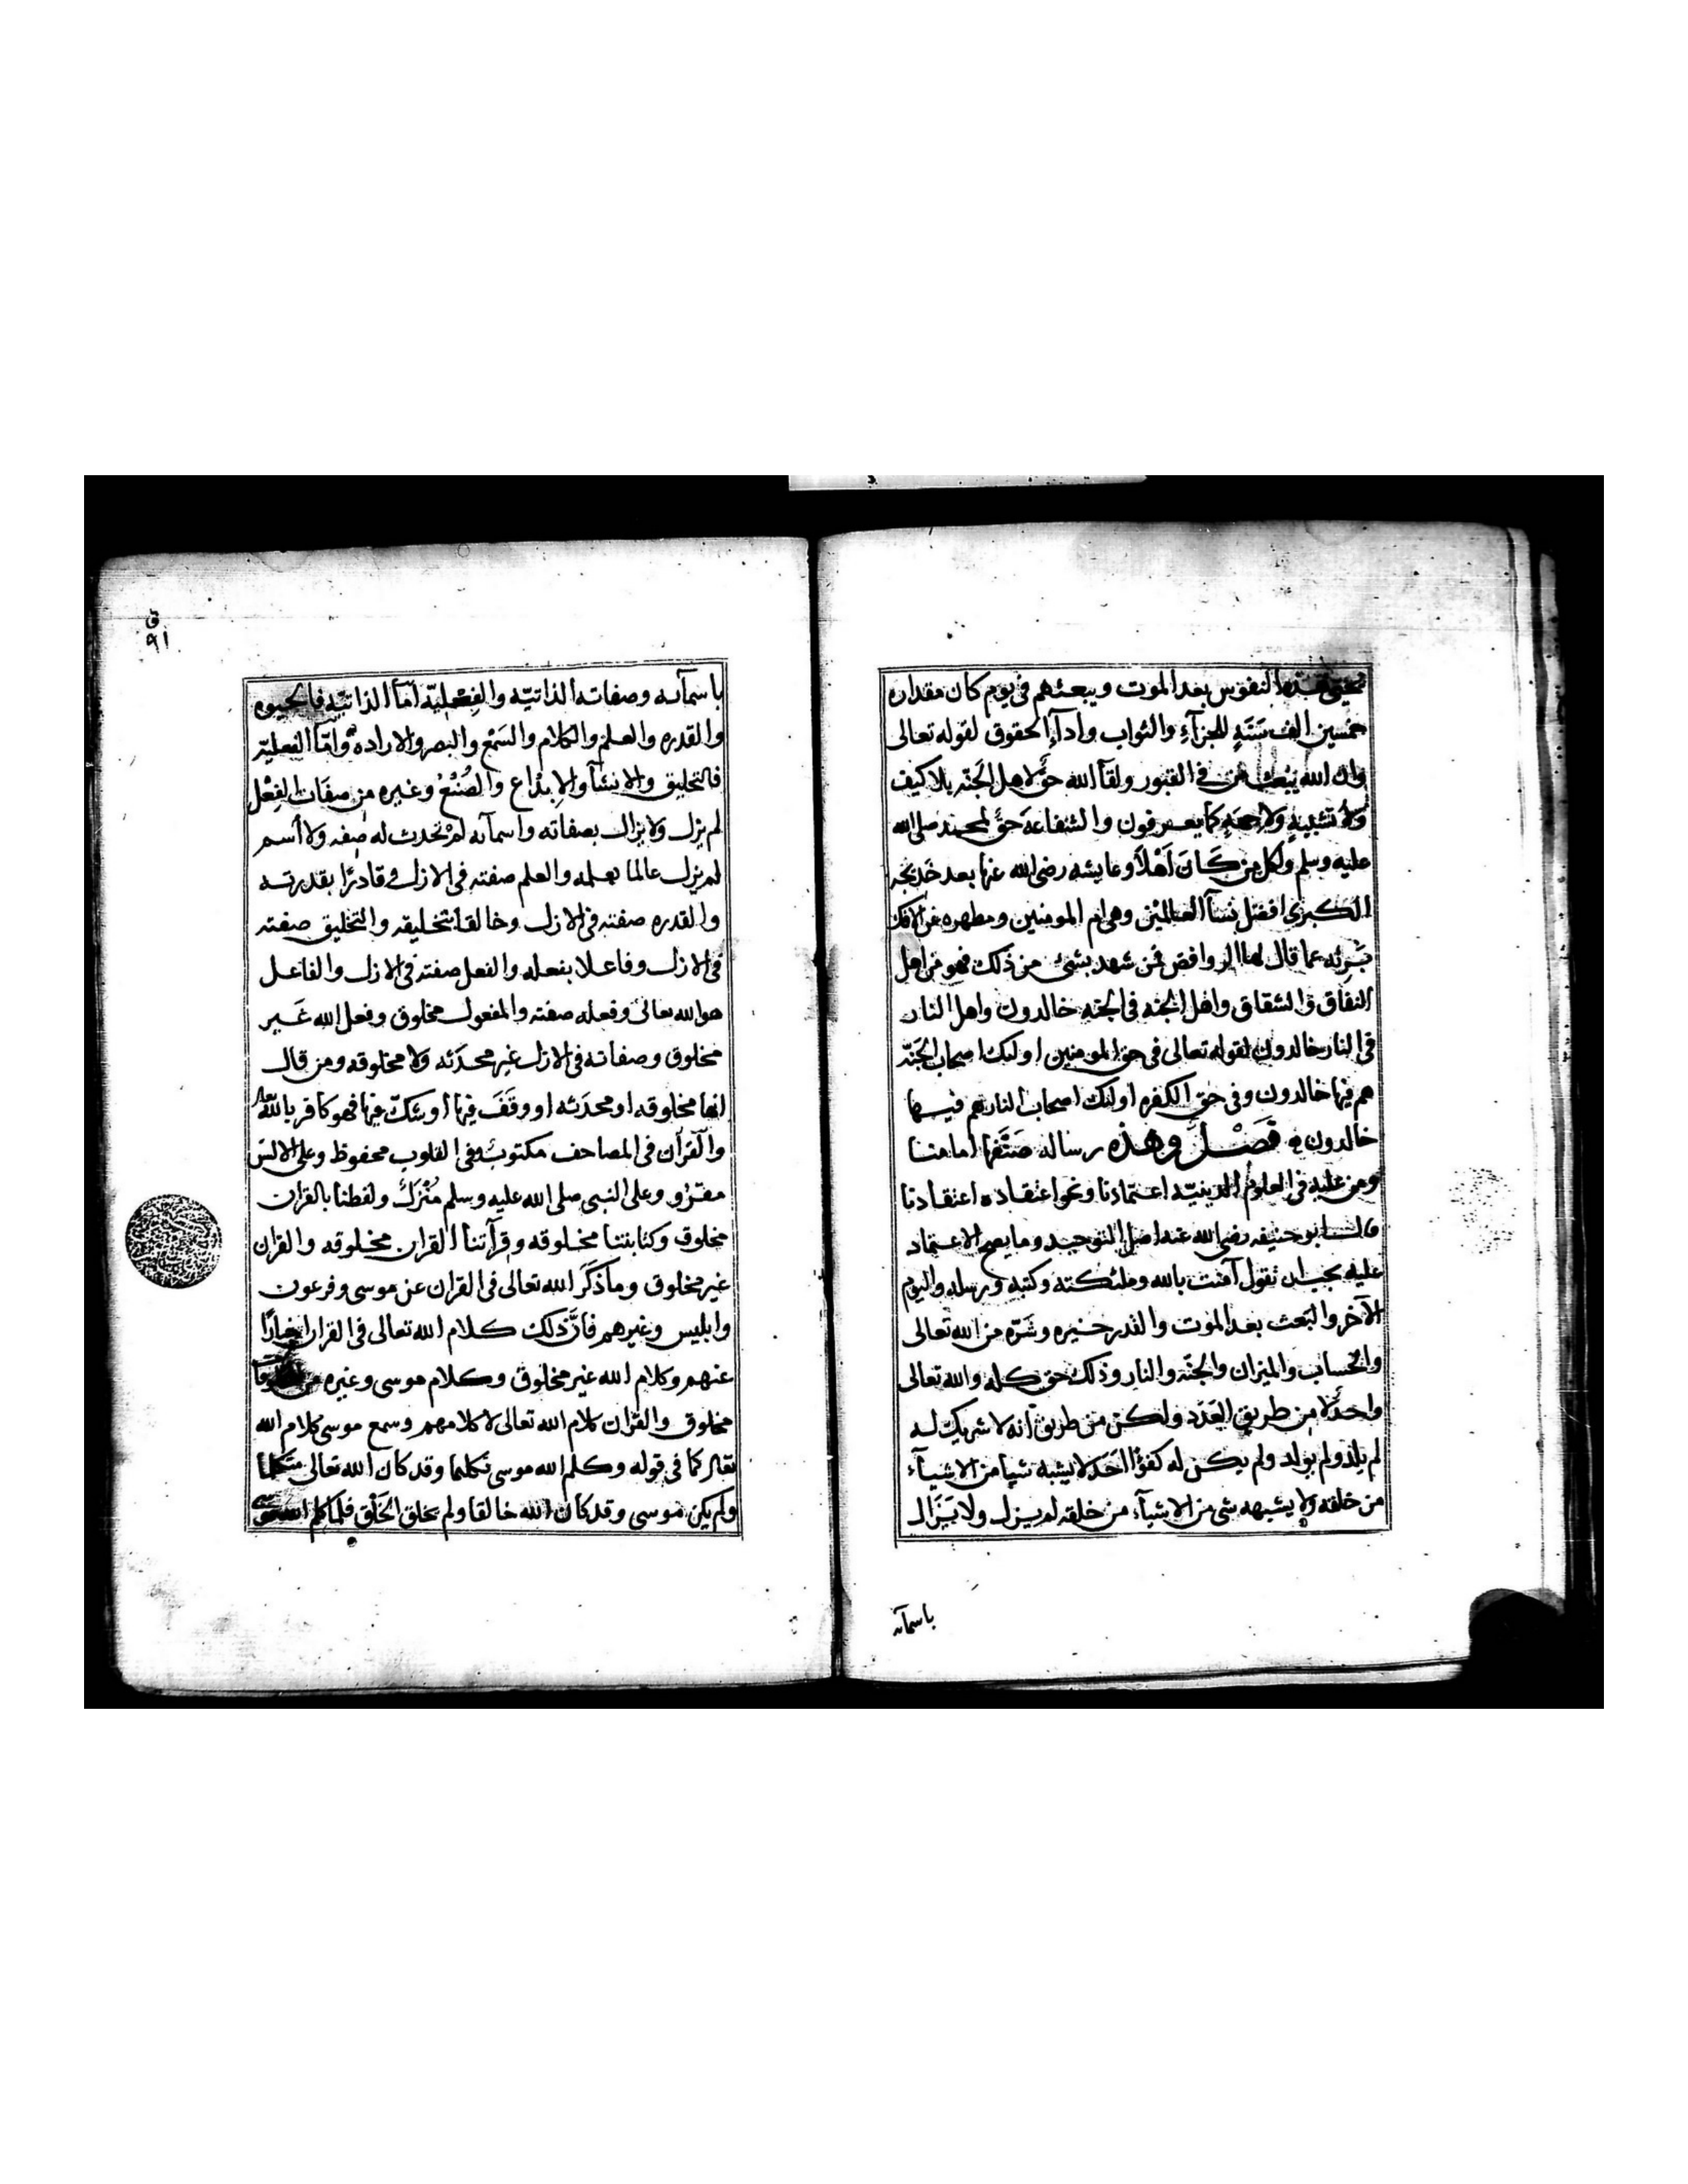 يحيي هذه النفوس بعد الموت ويبعثهم في يوم كان مقداره
خمسين الف سَنَةٍ للجزآءِ والثواب وادآءِ الحقوق لقوله تعالى
وان الله يبعث من في القبور ولقآ الله حقٌ لاهل الجَنّه بلا كيف
ولا تشبيهٍ ولا جهةٍ كما يعرفون والشفاعة حقٌ لمحمد صلى الله
عليه وسلم ولكل من كَانَ اَهْلاً وعايشه رضى الله عنها بعد خديجه
الكبرى افضل نسآ العالمين وهى ام المومنين ومطهره عن الافك
بَرِئه عما قال لها الروافض فمن شهد بشئ من ذلك فهو من اهل
النفاق والشقاق واهل الجنه فى الجنه خالدون واهل النار
فى النار خالدون لقوله تعالى فى حق المومنين اوليك اصحاب الجَنّه
هم فيها خالدون وفى حق الكفره اوليك اصحاب النار هم فيها
خالدون فَصْلٌ وهذه رساله صَنّفها امامنا
ومن عليه فى العلوم الدينيّه اعتمادنا ونحو اعتقاده اعتقادنا
قال ابو حنيفه رضى الله عنه اصل التوحيد وما يصح الاعتماد
عليه يجب ان تقول آمنت بالله وملئكته وكتبه ورسله واليوم
الآخر والبَعث بعد الموت والقدر خيره وشَرّه من الله تعالى
والحساب والميزان والجنّه والنار وذلك حق كله والله تعالى
واحدٌ لا من طريق العَدَد ولكن من طريق انه لا شريك له
لم يلد ولم يولد ولم يكن له كفوًا اَحَد لا يشبه شيا من الاشيآء
من خلقه ولا يشبهه شى من الاشيآء من خلقه لم يزل ولا يَزَال
باسمآئه
ق
٩١
باسمآئه وصفاته الذاتيّه والفِعْليّه امّا الذاتيّه فالحيوه
والقدره والعلم والكلام والسَمْع والبصر والاراده وامّا الفعليّه
فالتخليق والانشآ والاِبْدَاع والصُنْعُ وغيره من صفَات الفِعْل
لم يزل ولا يزال بصفاته واسمآئه لم تحدث له صفه ولا اسم
لم يزل عالما بعلمه والعلم صفته فى الازل وقادرًا بقدرته
والقدره صفته فى الازل وخالقا بتخليقه والتخليق صفته
فى الازل وفاعلا بفعله والفعل صفته فى الازل والفاعل
هو الله تعالى وفعله صفته والمفعول مخلوق وفعل الله غَير
مخلوق وصفاته فى الازل غير محدَثه ولا مخلوقه ومن قال
انها مخلوقه او محدَثه او وَقَفَ فيها او شكّ فيها فهو كافر بالله
والقرآن فى المصاحف مكتوب وفى القلوب محفوظ وعلى الالسن
مقرؤ وعلى النبى صلى الله عليه وسلم مُنْزَلٌ ولفظنا بالقران
مخلوق وكتابتنا مخلوقه وقرآتنا القران مخلوقه والقران
غير مخلوق وما ذكَرَ الله تعالى فى القران عن موسى وفرعون
وابليس وغيرهم فانّ ذلك كلام الله تعالى فى القران اخبارًا
عنهم وكلام الله غير مخلوق وكلام موسى وغيره من
مخلوق والقران كلام الله تعالى لا كلامهم وسمع موسى كلام الله
تعالى كما فى قوله وكلم الله موسى تكليما وقد كان الله تعالى متكلما
ولم يكن موسى وقد كان الله خالقا ولم يخلق الخَلْق فلما كلم الله موسى